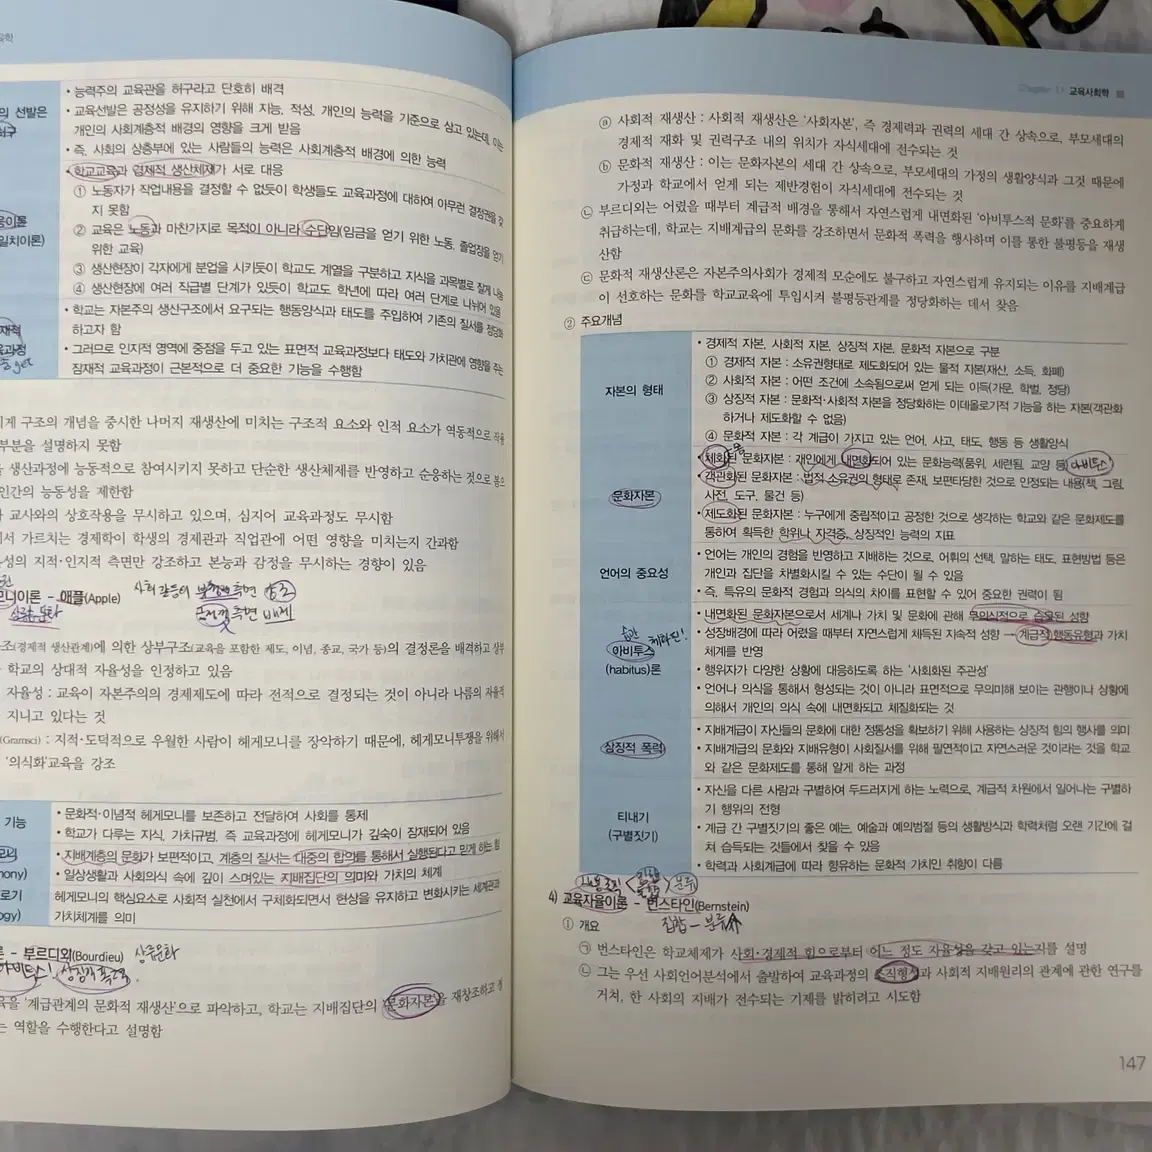 육학
의 선발은
허구
• 능력주의 교육관을 허구라고 단호히 배격
• 교육선발은 공정성을 유지하기 위해 지능, 적성, 개인의 능력을 기준으로 삼고 있는데, 이는
개인의 사회계층적 배경의 영향을 크게 받음
• 즉, 사회의 상층부에 있는 사람들의 능력은 사회계층적 배경에 의한 능력
응이론
일치이론)
• 학교교육과 경제적 생산체제가 서로 대응
① 노동자가 작업내용을 결정할 수 없듯이 학생들도 교육과정에 대하여 아무런 결정권을 갖
지 못함
② 교육은 노동과 마찬가지로 목적이 아니라 수단임(임금을 얻기 위한 노동, 졸업장을 얻기
위한 교육)
③ 생산현장이 각자에게 분업을 시키듯이 학교도 계열을 구분하고 지식을 과목별로 잘게 나눔
④ 생산현장에 여러 직급별 단계가 있듯이 학교도 학년에 따라 여러 단계로 나뉘어 있음
재적
육과정
• 학교는 자본주의 생산구조에서 요구되는 행동양식과 태도를 주입하여 기존의 질서를 정당화
하고자 함
• 그러므로 인지적 영역에 중점을 두고 있는 표면적 교육과정보다 태도와 가치관에 영향을 주는
잠재적 교육과정이 근본적으로 더 중요한 기능을 수행함
게 구조의 개념을 중시한 나머지 재생산에 미치는 구조적 요소와 인적 요소가 역동적으로 작용
부분을 설명하지 못함
생산과정에 능동적으로 참여시키지 못하고 단순한 생산체제를 반영하고 순응하는 것으로 봄으
인간의 능동성을 제한함
교사와의 상호작용을 무시하고 있으며, 심지어 교육과정도 무시함
서 가르치는 경제학이 학생의 경제관과 직업관에 어떤 영향을 미치는지 간과함
성의 지적·인지적 측면만 강조하고 본능과 감정을 무시하는 경향이 있음
모니이론 - 애플(Apple) 사회 갈등이 부정적 측면 강조
상류문화 긍정적 측면 배제
조(경제적 생산관계)에 의한 상부구조(교육을 포함한 제도, 이념, 종교, 국가 등)의 결정론을 배격하고 상부
학교의 상대적 자율성을 인정하고 있음
자율성 : 교육이 자본주의의 경제제도에 따라 전적으로 결정되는 것이 아니라 나름의 자율적
지니고 있다는 것
(Gramsci) : 지적·도덕적으로 우월한 사람이 헤게모니를 장악하기 때문에, 헤게모니투쟁을 위해서
'의식화'교육을 강조
기능
• 문화적·이념적 헤게모니를 보존하고 전달하여 사회를 통제
• 학교가 다루는 지식, 가치규범, 즉 교육과정에 헤게모니가 깊숙이 잠재되어 있음
모니
mony)
• 지배계층의 문화가 보편적이고, 계층의 질서는 대중의 합의를 통해서 실행된다고 믿게 하는 힘
• 일상생활과 사회의식 속에 깊이 스며있는 지배집단의 의미와 가치의 체계
로기
ogy)
헤게모니의 핵심요소로 사회적 실천에서 구체화되면서 현상을 유지하고 변화시키는 세계관과
가치체계를 의미
론 - 부르디외(Bourdieu) 상류문화
아비투스! 상징적 폭력
육을 '계급관계의 문화적 재생산'으로 파악하고, 학교는 지배집단의 '문화자본'을 재창조하고 정
는 역할을 수행한다고 설명함
Chapter 11 교육사회학
ⓐ 사회적 재생산 : 사회적 재생산은 '사회자본', 즉 경제력과 권력의 세대 간 상속으로, 부모세대의
경제적 재화 및 권력구조 내의 위치가 자식세대에 전수되는 것
ⓑ 문화적 재생산 : 이는 문화자본의 세대 간 상속으로, 부모세대의 가정의 생활양식과 그것 때문에
가정과 학교에서 얻게 되는 제반경험이 자식세대에 전수되는 것
㉡ 부르디외는 어렸을 때부터 계급적 배경을 통해서 자연스럽게 내면화된 '아비투스적 문화'를 중요하게
취급하는데, 학교는 지배계급의 문화를 강조하면서 문화적 폭력을 행사하며 이를 통한 불평등을 재생
산함
㉢ 문화적 재생산론은 자본주의사회가 경제적 모순에도 불구하고 자연스럽게 유지되는 이유를 지배계급
이 선호하는 문화를 학교교육에 투입시켜 불평등관계를 정당화하는 데서 찾음
② 주요개념
자본의 형태
• 경제적 자본, 사회적 자본, 상징적 자본, 문화적 자본으로 구분
① 경제적 자본 : 소유권형태로 제도화되어 있는 물적 자본(재산, 소득, 화폐)
② 사회적 자본 : 어떤 조건에 소속됨으로써 얻게 되는 이득(가문, 학벌, 정당)
③ 상징적 자본 : 문화적·사회적 자본을 정당화하는 이데올로기적 기능을 하는 자본(객관화
하거나 제도화할 수 없음)
④ 문화적 자본 : 각 계급이 가지고 있는 언어, 사고, 태도, 행동 등 생활양식
문화자본
• 체화된 문화자본 : 개인에게 내면화되어 있는 문화능력(품위, 세련됨, 교양 등) 아비투스
• 객관화된 문화자본 : 법적 소유권의 형태로 존재, 보편타당한 것으로 인정되는 내용(책, 그림,
사전, 도구, 물건 등)
• 제도화된 문화자본 : 누구에게 중립적이고 공정한 것으로 생각하는 학교와 같은 문화제도를
통하여 획득한 학위나 자격증, 상징적인 능력의 지표
언어의 중요성
• 언어는 개인의 경험을 반영하고 지배하는 것으로, 어휘의 선택, 말하는 태도, 표현방법 등은
개인과 집단을 차별화시킬 수 있는 수단이 될 수 있음
• 즉, 특유의 문화적 경험과 의식의 차이를 표현할 수 있어 중요한 권력이 됨
습관 체화된!
아비투스
(habitus)론
• 내면화된 문화자본으로서 세계나 가치 및 문화에 관해 무의식적으로 습득된 성향
• 성장배경에 따라 어렸을 때부터 자연스럽게 체득된 지속적 성향 → 계급적 행동유형과 가치
체계를 반영
• 행위자가 다양한 상황에 대응하도록 하는 '사회화된 주관성'
• 언어나 의식을 통해서 형성되는 것이 아니라 표면적으로 무의미해 보이는 관행이나 상황에
의해서 개인의 의식 속에 내면화되고 체질화되는 것
상징적 폭력
• 지배계급이 자신들의 문화에 대한 정통성을 확보하기 위해 사용하는 상징적 힘의 행사를 의미
• 지배계급의 문화와 지배유형이 사회질서를 위해 필연적이고 자연스러운 것이라는 것을 학교
와 같은 문화제도를 통해 알게 하는 과정
티내기
(구별짓기)
• 자신을 다른 사람과 구별하여 두드러지게 하는 노력으로, 계급적 차원에서 일어나는 구별하
기 행위의 전형
• 계급 간 구별짓기의 좋은 예는, 예술과 예의범절 등의 생활방식과 학력처럼 오랜 기간에 걸
쳐 습득되는 것들에서 찾을 수 있음
• 학력과 사회계급에 따라 향유하는 문화적 가치인 취향이 다름
4) 교육자율이론 - 번스타인(Bernstein)
① 개요 집합 - 분류↑
㉠ 번스타인은 학교체제가 사회·경제적 힘으로부터 어느 정도 자율성을 갖고 있는지를 설명
㉡ 그는 우선 사회언어분석에서 출발하여 교육과정의 조직형성과 사회적 지배원리의 관계에 관한 연구를
거쳐, 한 사회의 지배가 전수되는 기제를 밝히려고 시도함
147